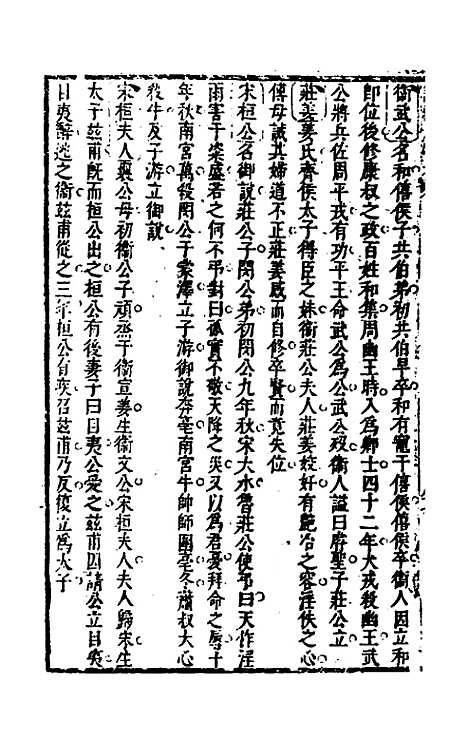 衞武公名和僖侯子共伯弟初共伯早卒和有寵于僖侯僖侯卒衞人因立和
卽位後修康叔之政百姓和集周幽王時入爲卿士四十二年犬戎殺幽王武
公將兵佐周平戎有功平王命武公爲公武公歿衞人謚曰睿聖子莊公立
莊姜姜氏齊侯太子得臣之妹衞莊公夫人莊姜姣好有艷冶之容淫佚之心
傅母誡其婦道不正莊姜感而自修卒賢而竟失位
宋桓公名御說莊公子閔公弟初閔公九年秋宋大水魯莊公使弔曰天作淫
雨害于粢盛若之何不弔對曰孤實不敬天降之災又以爲君憂拜命之辱十
年秋南宮萬殺閔公于蒙澤立子游御說奔亳南宮牛帥師圍亳冬蕭叔大心
殺牛及子游立御說
宋桓夫人襄公母初衞公子頑烝于衞宣姜生衞文公宋桓夫人夫人歸宋生
太子茲甫旣而桓公出之桓公有後妻子曰目夷公愛之茲甫因請公立目夷
目夷辭逃之衞茲甫從之三年桓公有疾召茲甫乃反復立爲太子